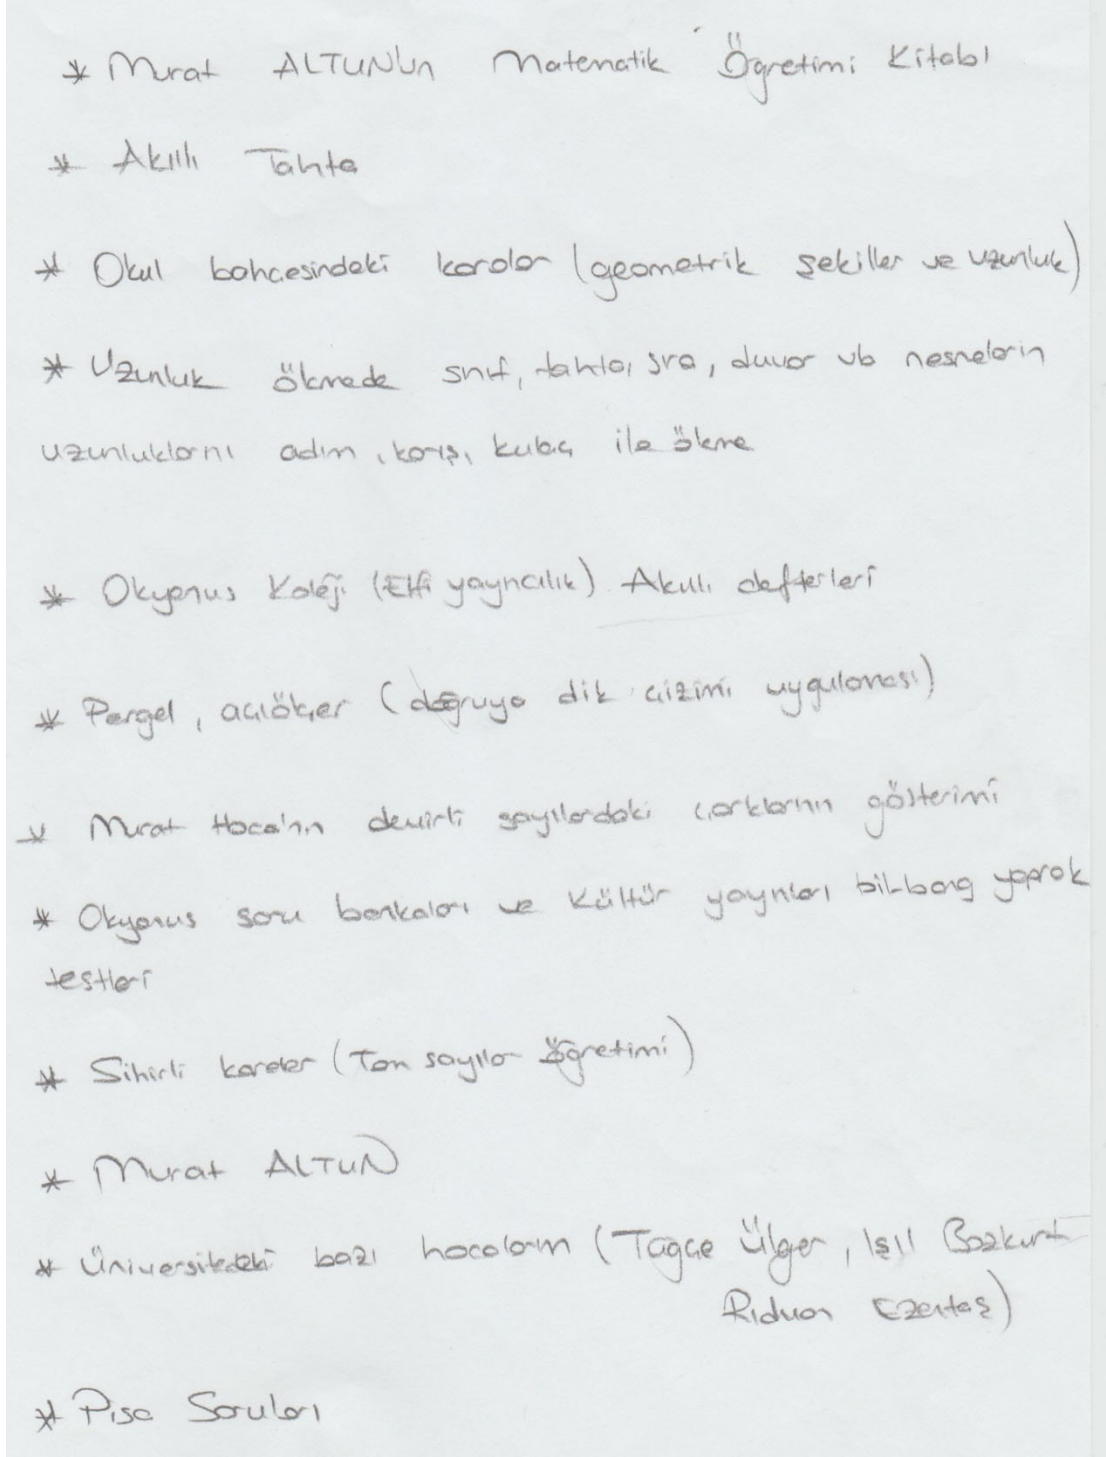 * Murat ALTUN'un Matematik Öğretimi Kitabı
* Akıllı Tahta
* Okul bahcesindeki karolar (geometrik şekiller ve uzunluk)
* Uzunluk ölçmede sınıf, tahta, sıra, duvar vb nesnelerin
uzunluklarını adım, karış, kulaç ile ölçme
* Okyanus Koleji (Elfi yayıncılık) Akıllı defterleri
* Pergel, açıölçer (doğruya dik çizimi uygulaması)
* Murat Hoca'nın devirli sayılardaki çarklarının gösterimi
* Okyanus soru bankaları ve Kültür yayınları bil-bang yaprak
testleri
* Sihirli kareler (Tam sayılar öğretimi)
* Murat ALTUN
* Üniversitedeki bazı hocalarım (Ülger, Işıl Bozkurt
Rıdvan Ezentaş)
* Pisa Soruları